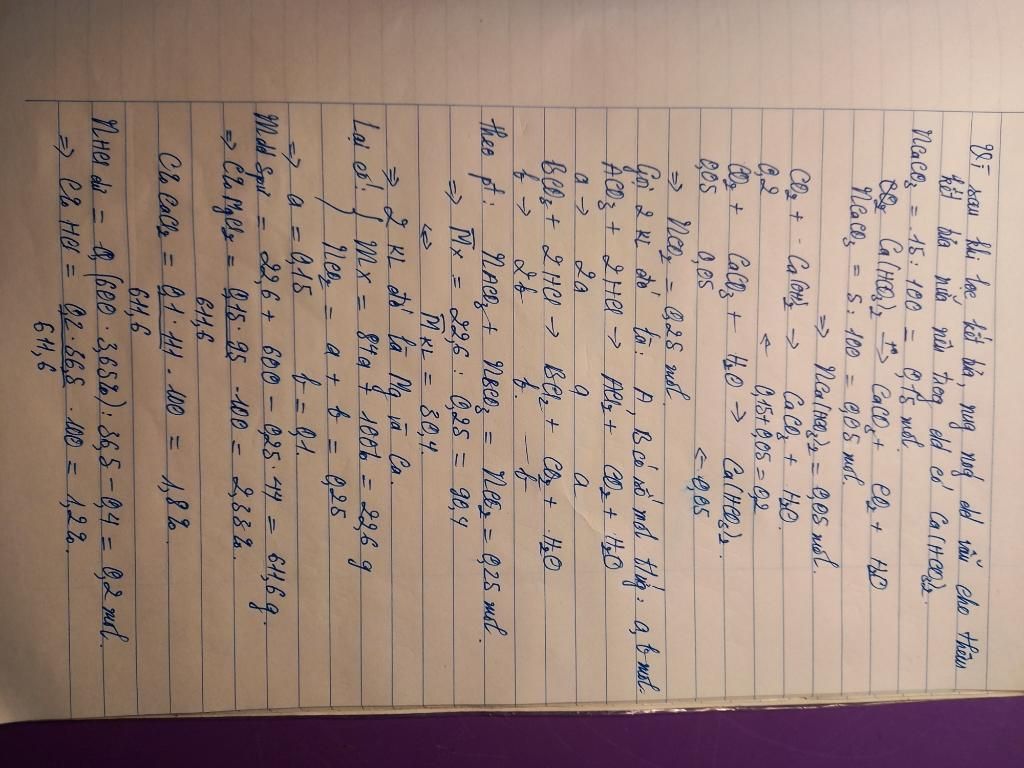 Vì sau khi lọc kết tủa, nung nóng dd vẫn cho thêm
kết tủa nữa nên trog dd có Ca(HCO3)2.
nCaCO3 = 15 : 100 = 0,15 mol
Ca(HCO3)2 →t° CaCO3 + CO2 + H2O
nCaCO3 = 5 : 100 = 0,05 mol.
⇒ nCa(HCO3)2 = 0,05 mol.
CO2 + Ca(OH)2 → CaCO3 + H2O.
0,2 ← 0,15+0,05 = 0,2
CO2 + CaCO3 + H2O → Ca(HCO3)2.
0,05 0,05 ← 0,05
⇒ nCO2 = 0,25 mol.
Gọi 2 kl đó là: A, B có số mol t/ứg: a, b mol.
ACO3 + 2HCl → ACl2 + CO2 + H2O
a → 2a a a
BCO3 + 2HCl → BCl2 + CO2 + H2O
b → 2b b — b
theo pt: nACO3 + nBCO3 = nCO2 = 0,25 mol.
⇒ M̅x = 22,6 : 0,25 = 90,4
⇔ M̅KL = 30,4
⇒ 2 KL đó là Mg và Ca.
Lại có: { mx = 84a + 100b = 22,6 g
nCO2 = a + b = 0,25
⇒ a = 0,15 b = 0,1.
mdd spư = 22,6 + 600 - 0,25.44 = 611,6 g.
⇒ C% MgCl2 = 0,15.95/611,6 .100 = 2,33%.
C% CaCl2 = 0,1.111/611,6 .100 = 1,8%.
nHCl dư = (600.3,65%):36,5 - 0,4 = 0,2 mol.
⇒ C% HCl = 0,2.36,5/611,6 .100 = 1,2%.